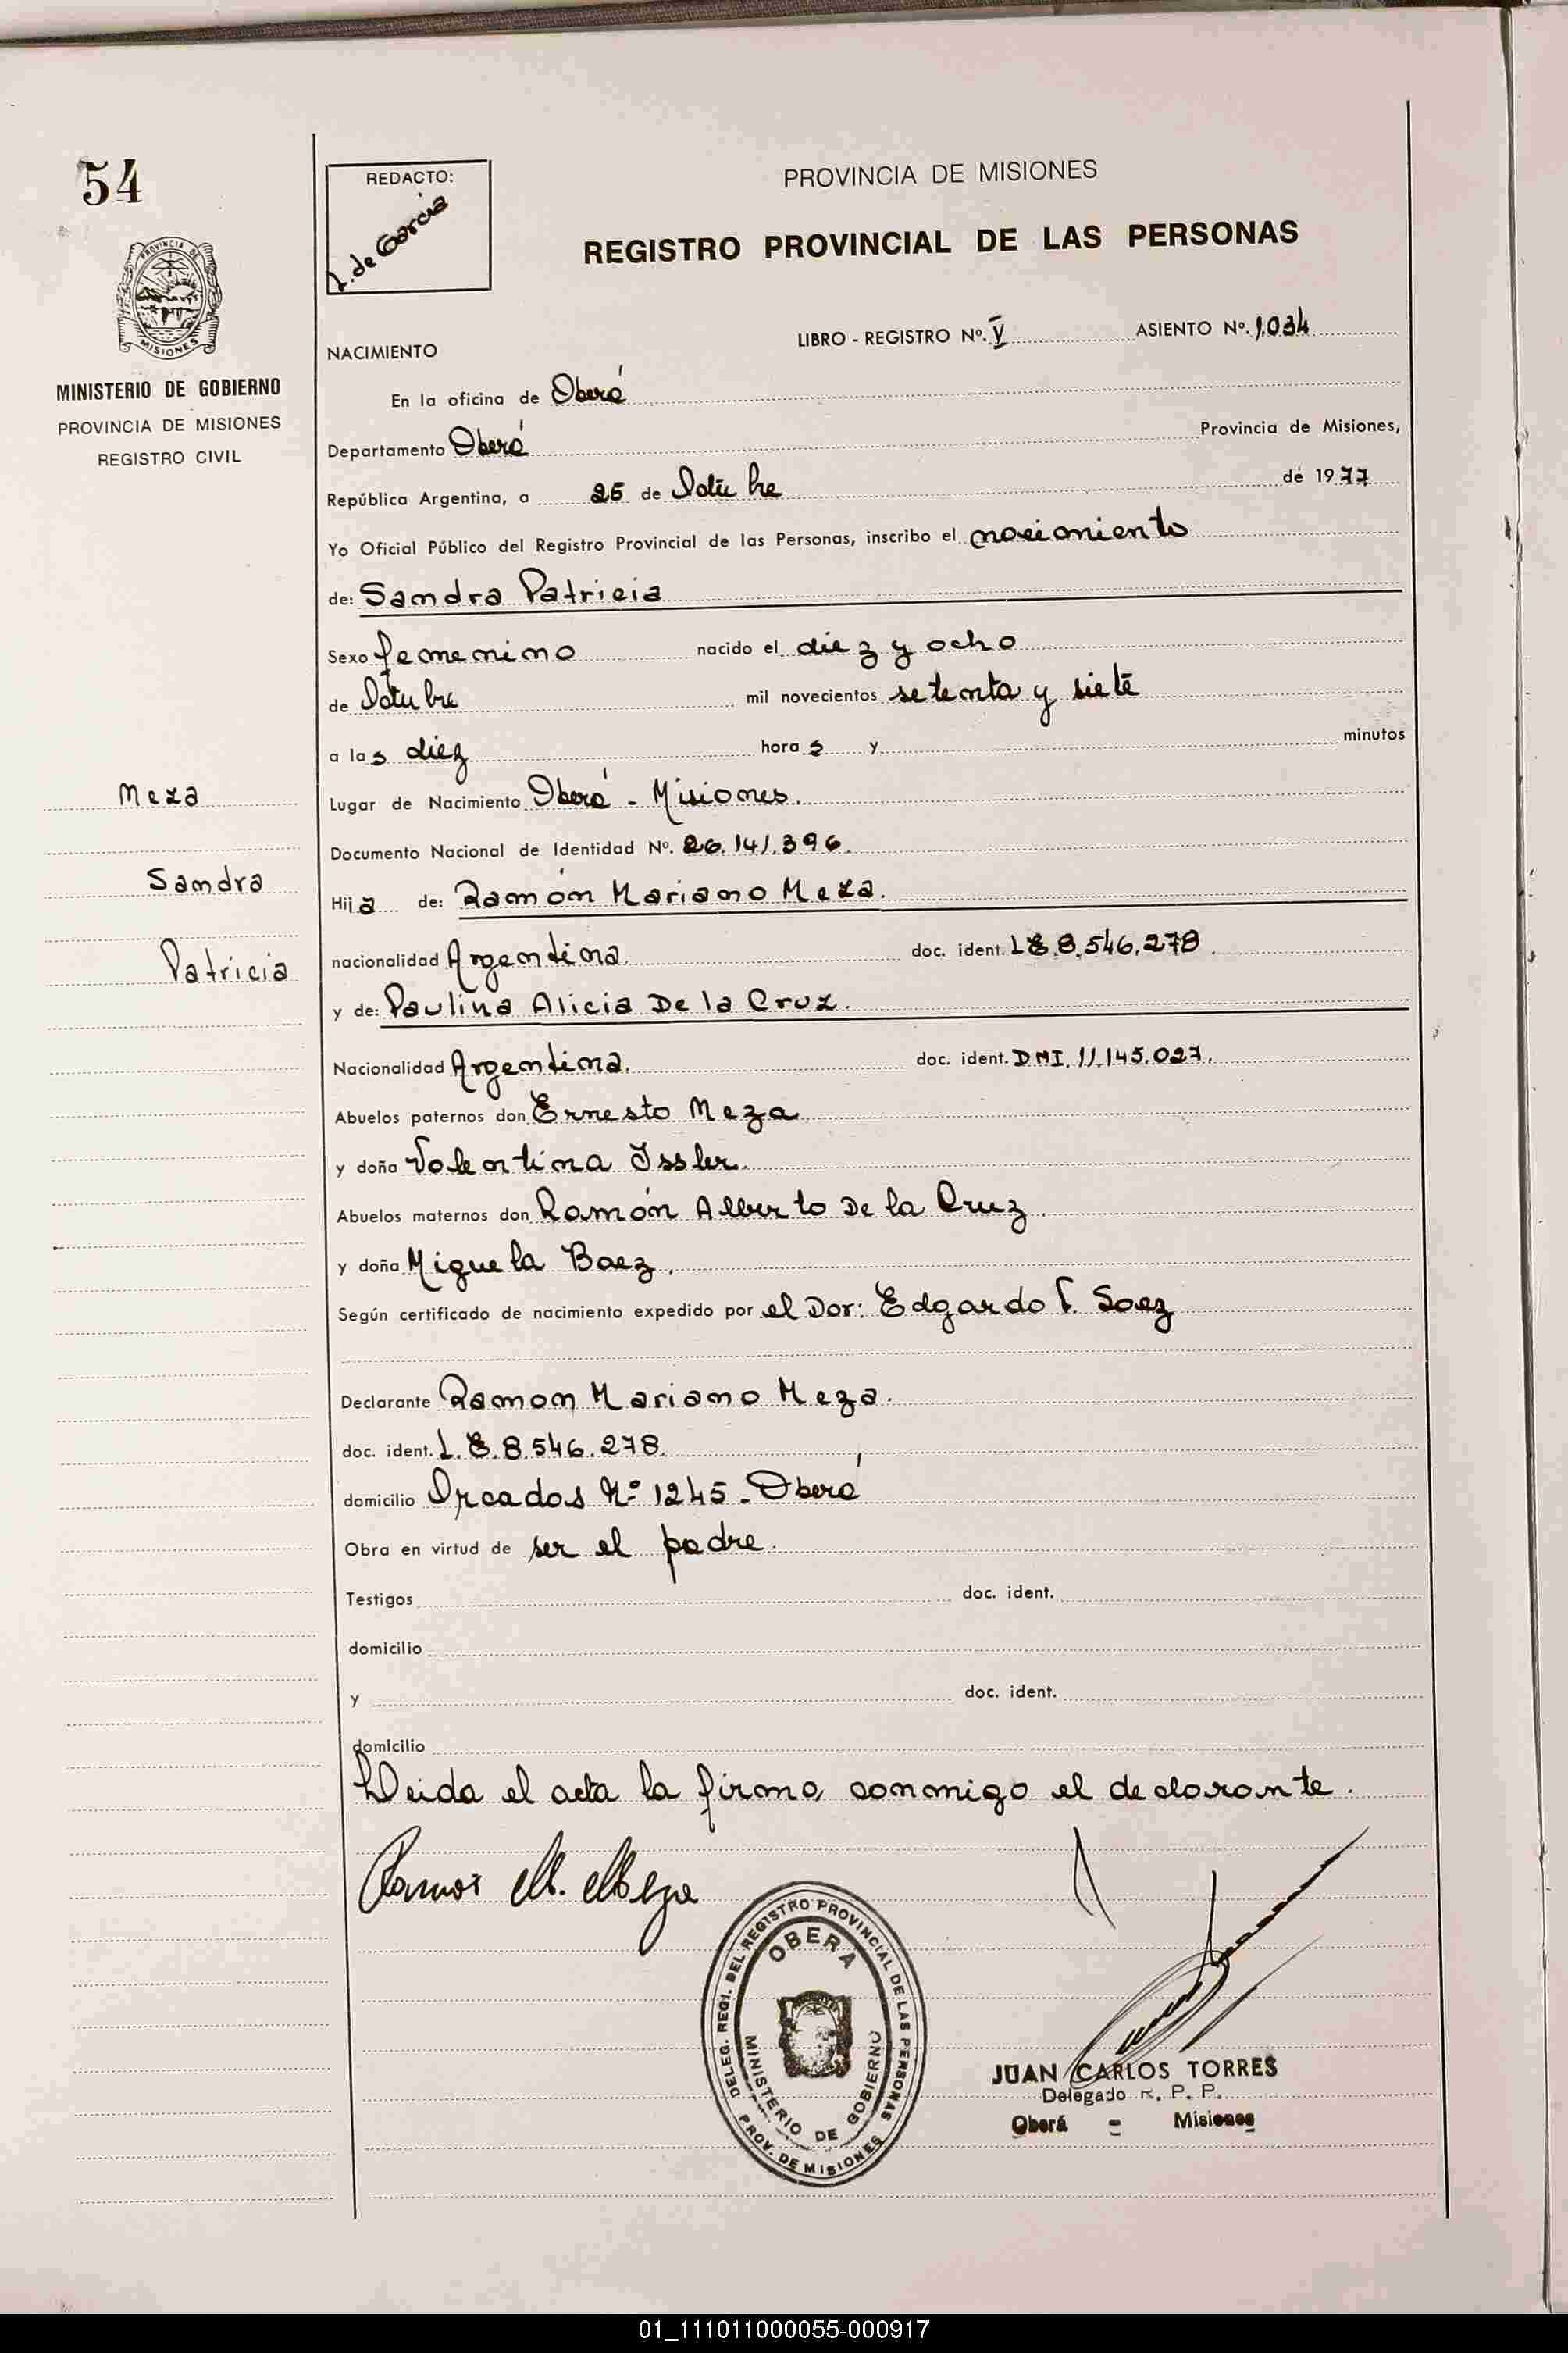 54
REDACTO:
L. de Garcia
PROVINCIA DE MISIONES
REGISTRO PROVINCIAL DE LAS PERSONAS
PROVINCIA DE
MISIONES
MINISTERIO DE GOBIERNO
PROVINCIA DE MISIONES
REGISTRO CIVIL
NACIMIENTO
LIBRO - REGISTRO Nº. V ASIENTO Nº. 1.034
En la oficina de Oberá
Departamento Oberá Provincia de Misiones,
República Argentina, a 25 de Octubre de 1977
Yo Oficial Público del Registro Provincial de las Personas, inscribo el nacimiento
de: Sandra Patricia
Sexo femenino nacido el diez y ocho
de Octubre mil novecientos setenta y siete
a las diez horas y minutos
Meza
Lugar de Nacimiento Oberá - Misiones.
Documento Nacional de Identidad Nº. 26.141.396.
Sandra
Hija de: Ramón Mariano Meza.
Patricia
nacionalidad Argentina. doc. ident. LE.8.546.278.
y de: Paulina Alicia De la Cruz.
Nacionalidad Argentina. doc. ident. DNI. 11.145.027.
Abuelos paternos don Ernesto Meza
y doña Valentina Issler.
Abuelos maternos don Ramón Alberto De la Cruz.
y doña Miguela Baez.
Según certificado de nacimiento expedido por el Dor: Edgardo Saez
Declarante Ramon Mariano Meza.
doc. ident. L.E.8.546.278.
domicilio Nº 1245 - Oberá
Obra en virtud de ser el padre.
Testigos doc. ident.
domicilio
y doc. ident.
domicilio
Leida el acta la firma conmigo el declarante.
Ramon M. Meza
DELEG. REGI. DEL REGISTRO PROVINCIAL DE LAS PERSONAS
OBERA
MINISTERIO DE GOBIERNO
PROV. DE MISIONES
JUAN CARLOS TORRES
Delegado R. P. P.
Oberá - Misiones
01_111011000055-000917